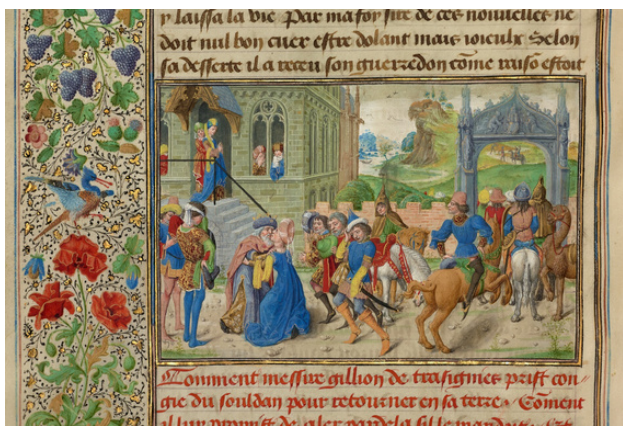 y laissa la vie Par ma foy sire de ces nouuelles ne
doit nul bon cuer estre dolant mais ioieulx Selon
sa desserte il a receu son guerredon come raiso estoit
Comment messire gillion de trasignies prist con
gie du souldan pour retourner en sa terre Coment
il lui promist de aler garde la sil le mandoit Et